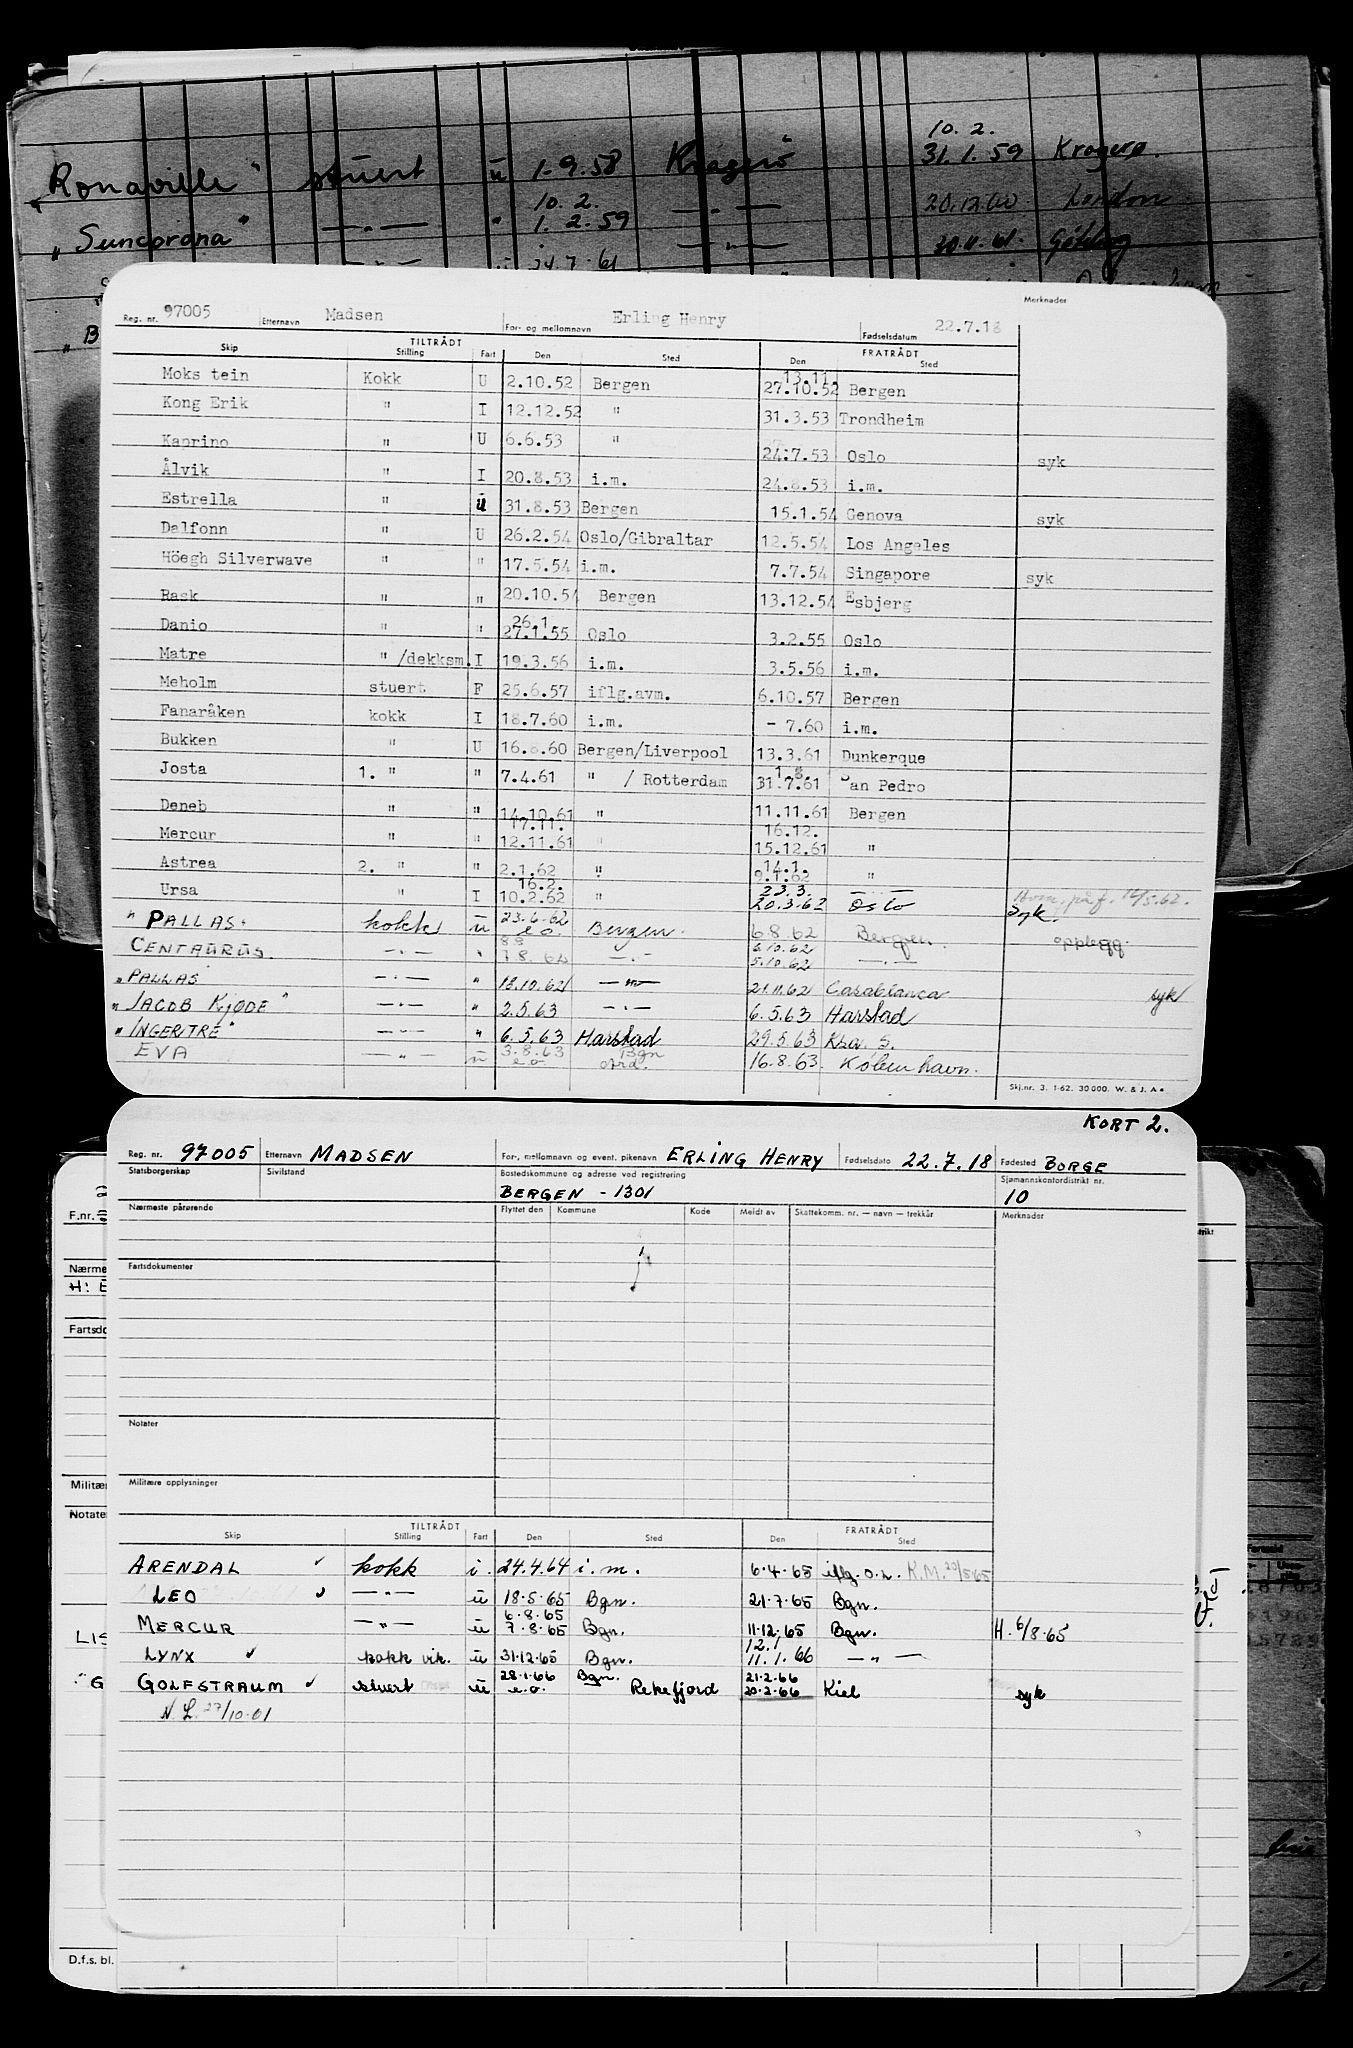 "Ronaville" stuert ü 1.9.58 Kragerö 10.2. 31.1.59 Kragerø.
"Suncorona" —"— " 10.2. 1.2.59 —"— 20.12.60 London
—"— ü 24.7.61 —"— 30.11.61. Göteborg
"B
Merknader
Reg. nr. 97005 Etternavn Madsen For- og mellomnavn Erling Henry Fødselsdatum 22.7.18
TILTRÅDT FRATRÅDT
Skip Stilling Fart Den Sted Den Sted
Moks tein Kokk U 2.10.52 Bergen 13.11. 27.10.52 Bergen
Kong Erik " I 12.12.52 " 31.3.53 Trondheim
Kaprino " U 6.6.53 " 24.7.53 Oslo syk
Ålvik " I 20.8.53 i.m. 24.8.53 i.m.
Estrella " ü 31.8.53 Bergen 15.1.54 Genova syk
Dalfonn " U 26.2.54 Oslo/Gibraltar 12.5.54 Los Angeles
Höegh Silverwave " " 17.5.54 i.m. 7.7.54 Singapore syk
Rask " " 20.10.54 Bergen 13.12.54 Esbjerg
Danio " " 26.1. 27.1.55 Oslo 3.2.55 Oslo
Matre " /dekksm. I 19.3.56 i.m. 3.5.56 i.m.
Meholm stuert F 25.6.57 iflg.avm. 6.10.57 Bergen
Fanaråken kokk I 18.7.60 i.m. - 7.60 i.m.
Bukken " U 16.8.60 Bergen/Liverpool 13.3.61 Dunkerque
Josta 1. " " 7.4.61 " / Rotterdam 1.8. 31.7.61 San Pedro
Deneb " " 14.10.61 " 11.11.61 Bergen
Mercur " " 17.11. 12.11.61 " 16.12. 15.12.61 "
Astrea 2. " " 2.1.62 " 14.1. 9.1.62 "
Ursa " I 16.2. 10.2.62 " 23.3. 20.3.62 Oslo syk.
"PALLAS" kokk ü 23.6.62 e.o. Bergen. 6.8.62 Bergen. opplegg.
CENTAURUS. —"— " 8.8 7.8.62 —"— 6.10.62 5.10.62 —"—
"PALLAS" —"— " 13.10.62 —"— 21.11.62 Casablanca syk
"JACOB KJØDE" —"— " 2.5.63 —"— 6.5.63 Harstad
"INGERTRE" —"— " 6.5.63 Harstad 29.5.63 Krs. S.
EVA —"— ü 3.8.63 e.o. Bgn 16.8.63 København.
Skj.nr. 3. 1-62. 30000. W. & J. A.s
KORT 2.
Reg. nr. 97005 Etternavn MADSEN For-, mellomnavn og event. pikenavn ERLING HENRY Fødselsdato 22.7.18 Fødested BORGE
Statsborgerskap Sivilstand Bostedskommune og adresse ved registrering Sjømannskontordistrikt nr.
BERGEN - 1301 10
Nærmeste pårørende Flyttet den Kommune Kode Meldt av Skattekomm. nr. — navn — trekkår Merknader
F.nr.
Fartsdokumenter
Nærme
H: E
Fartsdo
Notater
Militære opplysninger
Militær
Notate
TILTRÅDT FRATRÅDT
Skip Stilling Fart Den Sted Den Sted
ARENDAL kokk i. 24.4.64 i.m. 6.4.65 iflg. o.l. K.M. 20/5 65
LEO —"— ü 18.5.65 Bgn. 21.7.65 Bgn.
MERCUR —"— ü 6.8.65 7.8.65 Bgn. 11.12.65 Bgn. H. 6/8.65
LYNX kokk vik. ü 31.12.65 Bgn. 12.1 11.1.66 —"—
GOLFSTRAUM stuert ü 28.1.66 e.o. Bgn. Rekefjord 21.2.66 20.2.66 Kiel syk
N.L. 27/10.01
LIS
"G
D.f.s. bl.